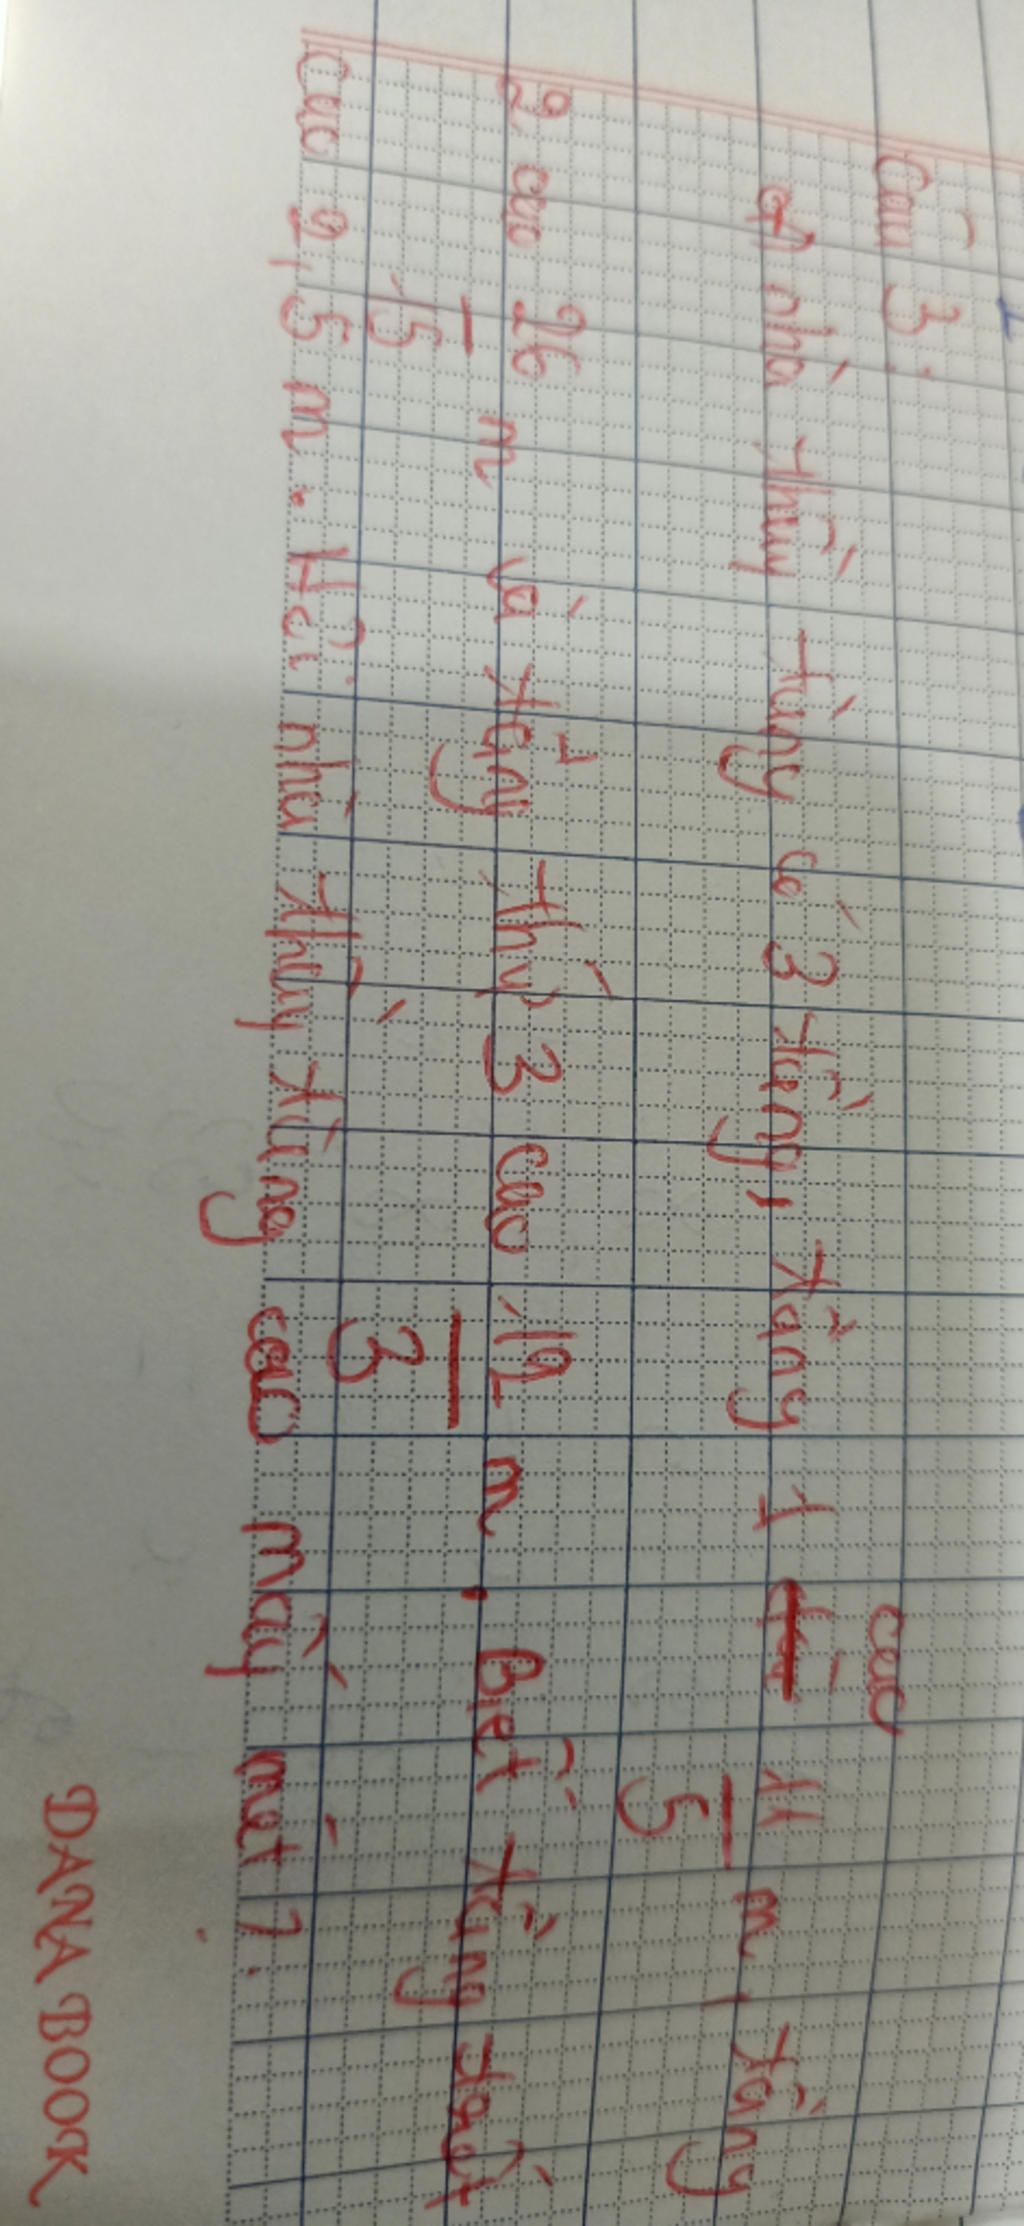 Câu 3:
cao
ở nhà thủy tùng có 3 tầng, tầng 1 t̶a̶ 11/5 m, tầng
2 cao 26/15 m và tầng thứ 3 cao 12/3 m. Biết tầng trệt
cao 2,5 m. Hỏi nhà thủy tùng cao mấy mét?
DANA BOOK